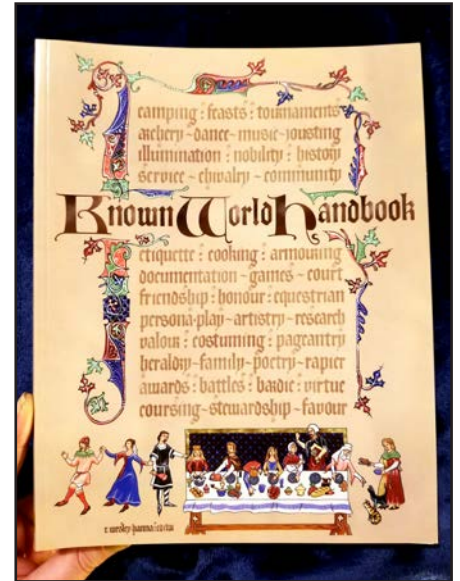 camping : feasts : tournaments
archery ~ dance ~ music ~ jousting
illumination : nobility : history
service ~ chivalry ~ community
Known World Handbook
etiquette : cooking : armouring
documentation ~ games ~ court
friendship : honour : equestrian
persona-play ~ artistry ~ research
valour : costuming : pageantry
heraldry ~ family ~ poetry ~ rapier
awards : battles : bardic : virtue
coursing ~ stewardship ~ favour